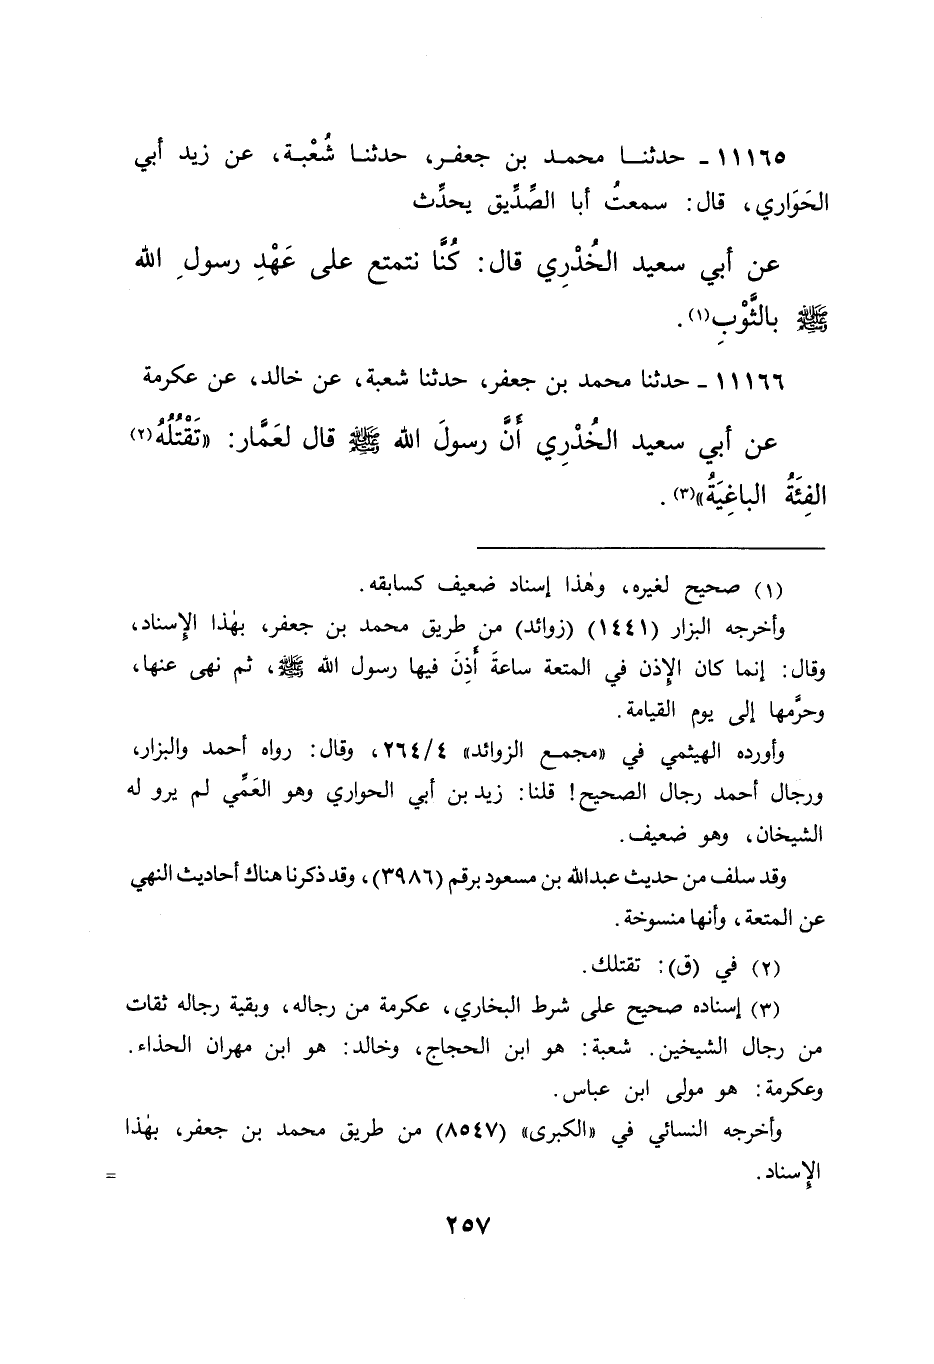 ١١١٦٥ - حدثنا محمد بن جعفر، حدثنا شُعْبة، عن زيد أبي
الحَوَاري، قال: سمعتُ أبا الصِّدِّيق يحدِّث
عن أبي سعيد الخُدْرِي قال: كُنَّا نتمتع على عَهْدِ رسولِ الله
ﷺ بالثَّوْبِ(١).
١١١٦٦ - حدثنا محمد بن جعفر، حدثنا شعبة، عن خالد، عن عكرمة
عن أبي سعيد الخُدْرِي أَنَّ رسولَ الله ﷺ قال لعَمَّار: «تَقْتُلُهُ(٢)
الفِئَةُ الباغِيَةُ»(٣).
(١) صحيح لغيره، وهٰذا إسناد ضعيف كسابقه.
وأخرجه البزار (١٤٤١) (زوائد) من طريق محمد بن جعفر، بهٰذا الإِسناد،
وقال: إنما كان الإِذن في المتعة ساعةَ أَذِنَ فيها رسول الله ﷺ، ثم نهى عنها،
وحرَّمها إلى يوم القيامة.
وأورده الهيثمي في «مجمع الزوائد» ٢٦٤/٤، وقال: رواه أحمد والبزار،
ورجال أحمد رجال الصحيح! قلنا: زيد بن أبي الحواري وهو العَمِّي لم يرو له
الشيخان، وهو ضعيف.
وقد سلف من حديث عبدالله بن مسعود برقم (٣٩٨٦)، وقد ذكرنا هناك أحاديث النهي
عن المتعة، وأنها منسوخة.
(٢) في (ق): تقتلك.
(٣) إسناده صحيح على شرط البخاري، عكرمة من رجاله، وبقية رجاله ثقات
من رجال الشيخين. شعبة: هو ابن الحجاج، وخالد: هو ابن مهران الحذاء.
وعكرمة: هو مولى ابن عباس.
وأخرجه النسائي في «الكبرى» (٨٥٤٧) من طريق محمد بن جعفر، بهٰذا
الإِسناد. =
٢٥٧